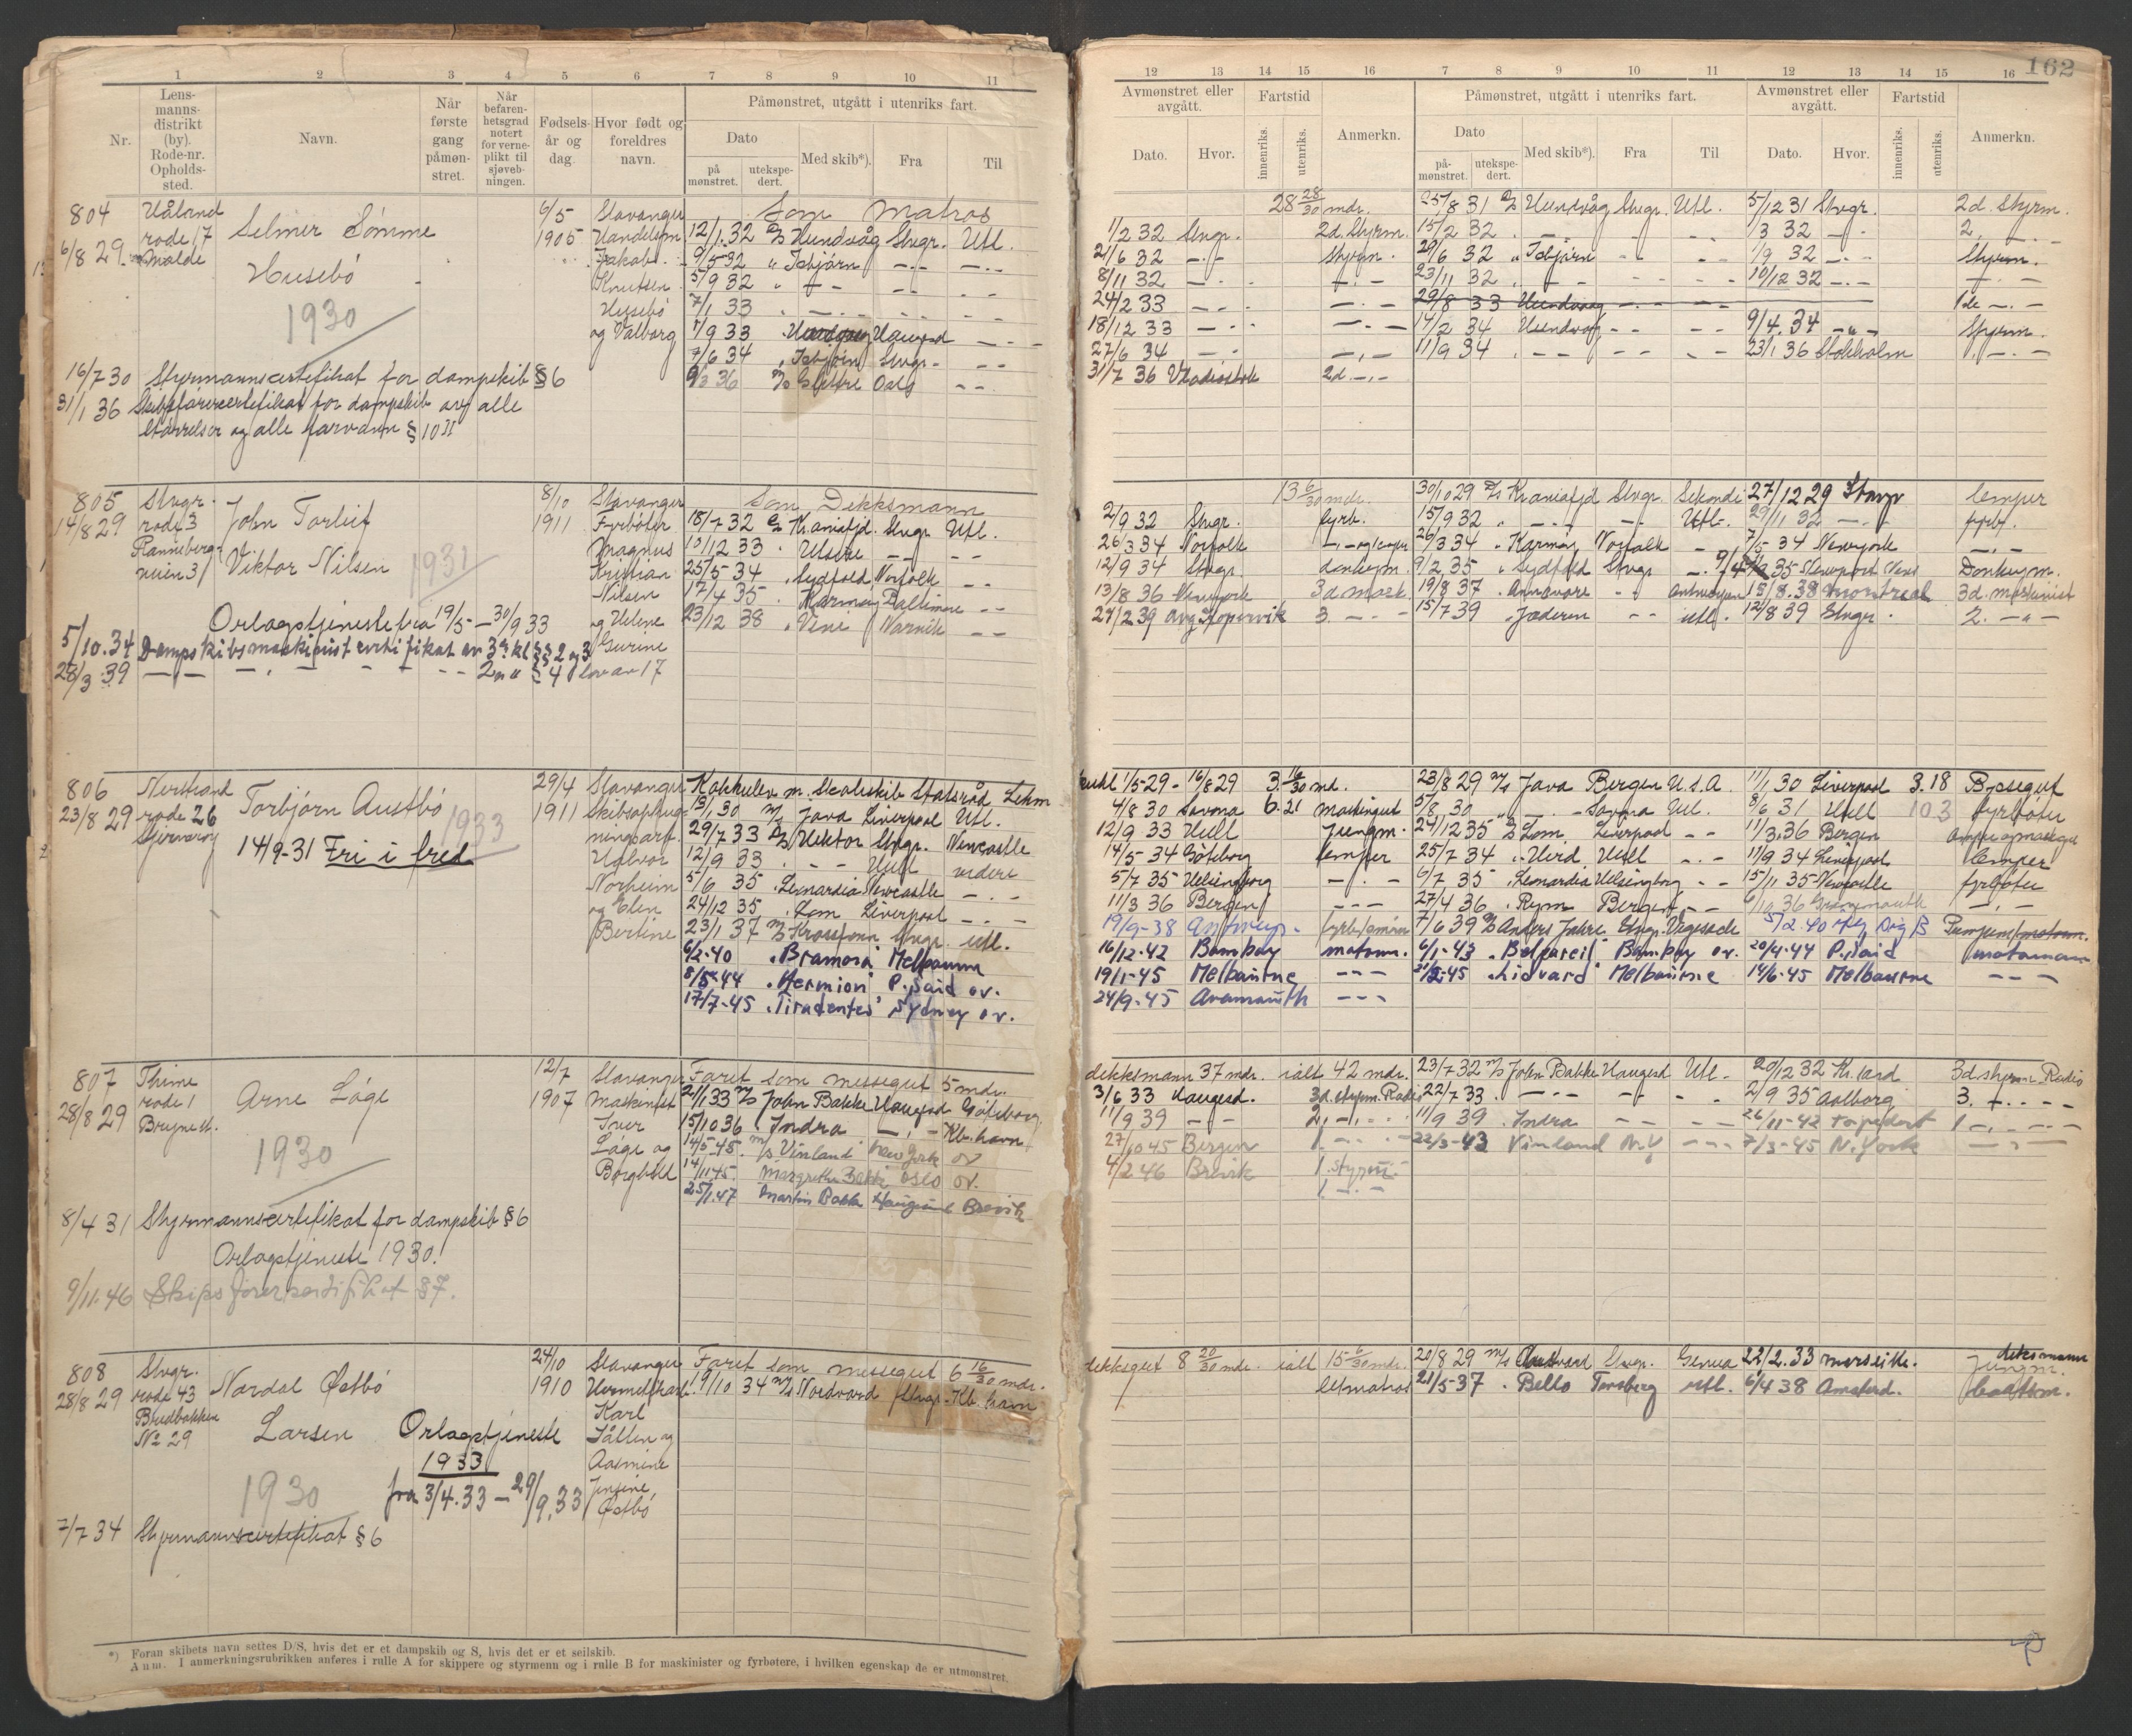 1 2 3 4 5 6 7 8 9 10 11
Nr.
Lens-
manns-
distrikt
(by).
Rode-nr.
Opholds-
sted.
Navn.
Når
første
gang
påmøn-
stret.
Når
befaren-
hetsgrad
notert
for verne-
plikt til
sjøveb-
ningen.
Fødsels-
år og
dag.
Hvor født og
foreldres
navn.
Påmønstret, utgått i utenriks fart.
Dato
på
mønstret.
utekspe-
dert.
Med skib*).
Fra
Til
804
6/8 29
Håland
rode 17
Molde
Selmer Sømme
Husebø
1930
6/5
1905
Stavanger
Handelsm
Jakob
Knutsen
Husebø
og Valborg
Som Matros
12/1 32 D/S Hundvåg Stvgr. Utl.
9/5 32 " Isbjørn — —
5/9 32 " — —
7/1 33
7/9 33 Haugesd
7/6 34 " Isbjørn Stvgr. —
9/3 36 Oslo — —
16/7 30 Styrmannscertifikat for dampskib § 6
31/1 36 Skibsførercertifikat for dampskib av alle
størrelser og alle farvann § 10 II
805
14/8 29
Stvgr.
rode 3
Ranneberg-
veien 31
John Torleif
Viktor Nilsen
1931
8/10
1911
Stavanger
Fyrbøter
Magnus
Kristian
Nilsen
og Helene
Gurine
Som Dekksmann
18/7 32 D/S Kr.aniafjd. Stvgr. Utl.
10/12 33 " Utsire — —
25/5 34 " Sydfold Norfolk — —
17/4 35 " Karmøy Baltimore — —
23/12 38 " Vine Narvik — —
Orlogstjeneste fra 19/5 — 30/9 33
5/10.34 Dampskibsmaskinistcertifikat av 3dje kl §§ 2 og 3
28/3 39 — — — — — 2nn " § 4 lov av 17
806
23/8 29
Nerstrand
rode 26
Stjernarøy
Torbjørn Austbø
1933
14/9-31 Fri i fred
29/4
1911
Stavanger
Skibsophug-
ningsarb.
Halvor
Norheim
og Elen
Bertine
Kokkelev m. Skoleskib Statsråd Lehm
13/1 30 M/S Java Liverpool Utl.
29/7 33 D/S Hektor Stvgr. Newcastle
12/9 33 " — Hull videre
5/6 35 " Leonardia Newcastle — —
24/12 35 " Lom Liverpool — —
23/1 37 M/S Krossfonn Stvgr. utl.
6/2-40 "Bramora" Melbourne
8/5-44 "Hermion" P. Said ov.
17/7-45 "Tiradentes" Sydney ov.
807
28/8 29
Thime
rode 1
Bryne st.
Arne Låge
1930
12/7
1907
Stavanger
Maskinist
Iver
Låge og
Borghild
Faret som messegut 5 mdr.
21/1 33 M/S John Bakke Haugesd Göteborg
15/10 36 " Indra — " — Kb.havn
14/5-45. M/S Vinland New York ov
14/11 45. Margrethe Bakke Oslo ov.
25/1.47 Martin Bakke Haugesund Brevik
8/4 31 Styrmannscertifikat for dampskib § 6
Orlogstjeneste 1930.
9/11.46 Skipsførersertifikat § 7.
808
28/8 29
Stvgr.
rode 43
Brudbakken
No 29
Nordal Østbø
Larsen
1930
Orlogstjeneste
1933
fra 3/4.33 — 29/9.33
24/10
1910
Stavanger
Hermetikarb.
Karl
og
Aasmine
Jensine,
Østbø
Faret som messegut 6 16/30 mdr.
19/10 34 M/S Nordvard Stvgr. Kb.havn
7/7 34 Styrmannscertifikat § 6
*) Foran skibets navn settes D/S, hvis det er et dampskib og S, hvis det er et seilskib.
Anm. I anmerkningsrubrikken anføres i rulle A for skippere og styrmenn og i rulle B for maskinister og fyrbøtere, i hvilken egenskap de er utmønstret.
162
12 13 14 15 16 7 8 9 10 11 12 13 14 15 16
Avmønstret eller
avgått.
Fartstid
Dato.
Hvor.
innenriks.
utenriks.
Anmerkn.
Påmønstret, utgått i utenriks fart.
Dato
på-
mønstret.
utekspe-
dert.
Med skib*).
Fra
Til
Avmønstret eller
avgått.
Fartstid
Dato.
Hvor.
innenriks.
utenriks.
Anmerkn.
28 28/30 mdr. 25/8 31 D/S Hundvåg Stvgr. Utl. 5/12 31 Stvgr. 2d. Styrm.
1/2 32 Stvgr. 2d. Styrm. 15/2 32 — — 1/3 32 — 2. —
21/6 32 — Styrm. 29/6 32 " Isbjørn — — 1/9 32 — Styrm.
8/11 32 — — 23/11 32 " — — 10/12 32 — —
24/2 33 — — 29/8 33 Hundvåg — — 1ste —
18/12 33 — — 14/2 34 Hundvåg — — 9/4.34 — Styrm.
27/6 34 — — 11/9 34 " — — 23/1 36 Stokholm —
31/7 36 Vladivostok 2d. —
13 6/30 mdr. 30/10 29 D/S Kr.aniafjd Stvgr. Sekondi 27/12 29 Stavgr lemper
2/9 32 Stvgr. fyrb. 15/9 32 " — — Utl. 29/11 32 — fyrb.
26/3 34 Norfolk — og lemper 26/3 34 " Karmøy Norfolk — 7/5 34 Newyork —
12/9 34 Stvgr. donkeym. 9/2 35 " Sydfold Stvgr — 35 Newport News Donkeym.
13/8 36 Newyork 3d mask. 19/8 37 " Annavore — Antwerpen 15/8.38 Montreal 3d. maskinist
24/2 39 Avg Kopervik 3. — 15/7 39 " Jæderen — utl. 12/8 39 Stvgr. 2. —
kuhl 1/5-29 - 16/8 29 3 16/30 md. 23/8 29 M/S Java Bergen U.S.A 11/1 30 Liverpool 3.18 Byssegut
4/8 30 Savona 6.21 Maskingut 5/8 30 " — Savona Utl. 8/6 31 Hull 10 3 fyrbøter
12/9 33 Hull Jungm. 24/12 35 D/S Lom Liverpool — 11/3 36 Bergen
14/5-34 Göteborg lemper 25/7 34 " Hird Hull — 11/9 34 Liverpool lemper
5/7 35 Helsingborg — 6/7 35 " Leonardia Helsingborg — 15/11 35 Newcastle fyrbøter
11/3 36 Bergen — 27/4 36 " Rym Bergen — 6/10 36 —
19/9-38 Antwerp. 7/6 39 M/S Anders Jahre Stvgr. Vegesack 5/2.40
16/12-42 Bombay motorm. 6/1-43 "Belpareil" Bombay ov. 20/4-44 P. Said motormann
19/1-45 Melbourne — — 21/2-45 "Lidvard" Melbourne 14/6-45 Melbourne — —
24/9-45 Avonmouth — —
dekksmann 37 mdr. ialt 42 mdr. 23/7 32 M/S John Bakke Haugesd Utl. 20/12 32 Kr.sand 3d styrm. Radio
3/6 33 Haugesd. 3d. styrm. Radio 22/7 33. — — 2/9 35 Aalborg 3. —
11/9 39 — 2. — 11/9 39 " Indra — — 26/11-42 Torpedert 1 —
27/10 45 Bergen 1. — 22/3-43 Vinland N.Y — 7/3-45 N.York —
4/2 46 Brevik 1. styrm.
1. —
dekksgut 8 20/30 mdr. ialt 15 6/30 mdr. 20/8 29 M/S Stvgr. Genua 22/2.33 Marseille. dekksmann
Jungm.
letmatros 21/5-37 " Bello Tønsberg utl. 6/4 38 Amsterd. baatsm.